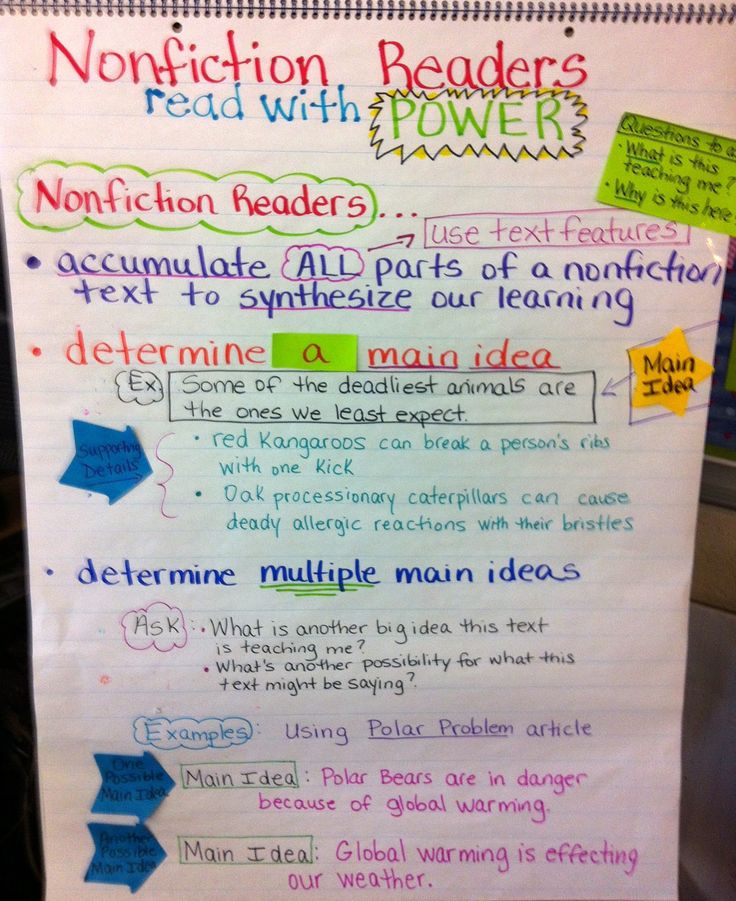 Nonfiction Readers
read with POWER
Questions to a
• What is this
teaching me?
• Why is this here
Nonfiction Readers...
use text features
• accumulate ALL parts of a nonfiction
text to synthesize our learning
• determine a main idea
Main
Idea
Ex Some of the deadliest animals are
the ones we least expect.
Supporting
Details
• red Kangaroos can break a person's ribs
with one kick
• Oak processionary caterpillars can cause
deady allergic reactions with their bristles
• determine multiple main ideas
Ask: • What is another big idea this text
is teaching me?
• What's another possibility for what this
text might be saying?
Examples: Using Polar Problem article
One
Possible
Main Idea
Main Idea: Polar Bears are in danger
because of global warming.
Another
Possible
Main Idea
Main Idea: Global warming is effecting
our weather.